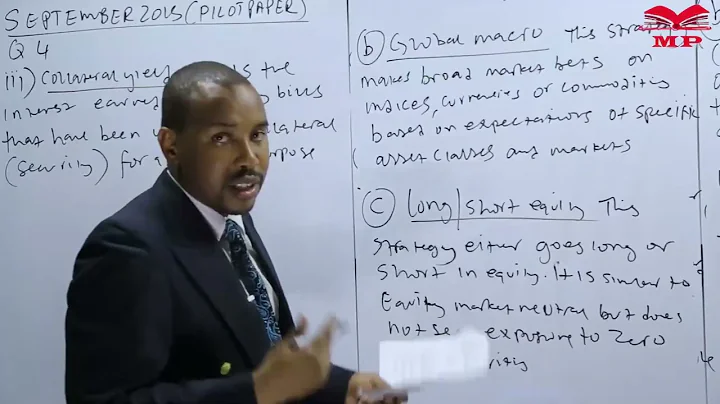 SEPTEMBER 2015 (PILOT PAPER)
Q 4
iii) Collateral yield the
interest earned bills
that have been collateral
(security) for purpose
(b) Global macro This
makes broad market bets on
indices, currencies or commodities
based on expectations of specific
asset classes and markets
(c) Long/short equity This
strategy either goes long or
short in equity. It is similar to
Equity market neutral but does
not exposure to zero
MP